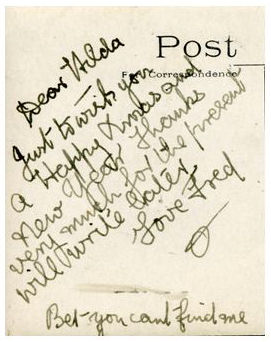 Post
For Correspondence
Dear Hilda
Just to wish you
a Happy Xmas and
New Year Thanks
very much for the present
will write later
Love Fred
Bet you cant find me